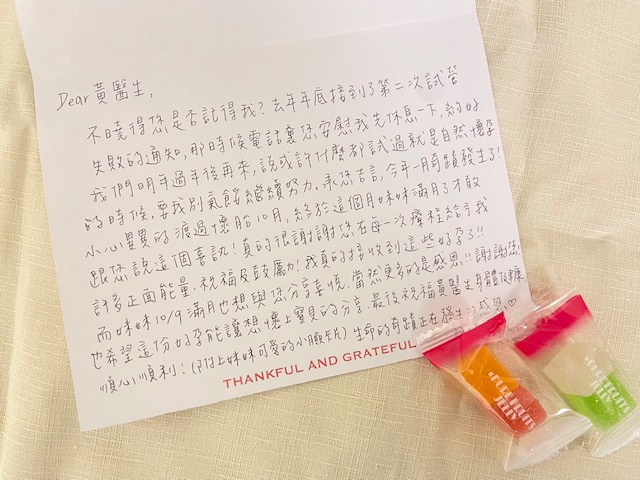 Dear 黃醫生,
不曉得您是否記得我？去年年底接到了第二次試管
失敗的通知，那時候電話裏您安慰我先休息一下，約好
我們明年過年後再來，說或許什麼都試過就是自然懷孕
的時候，要我別氣餒繼續努力。承您吉言，今年一月奇蹟發生了！
小心翼翼的渡過懷胎10月，終於這個月妹妹滿月了才敢
跟您說這個喜訊！真的很謝謝您在每一次療程給予我
許多正面能量、祝福及鼓勵！我真的接收到這些好孕了!!
而妹妹10/9滿月也想與您分享喜悅，當然更多的是感恩!!謝謝您!
也希望這份好孕能讓想懷上寶貝的分享。最後祝福黃醫生身體健康
順心順利！(附上妹妹可愛的小腳卡片) 生命的奇蹟正在發生:) 感恩♡
THANKFUL AND GRATEFUL
PURE FRUITS
JELLY